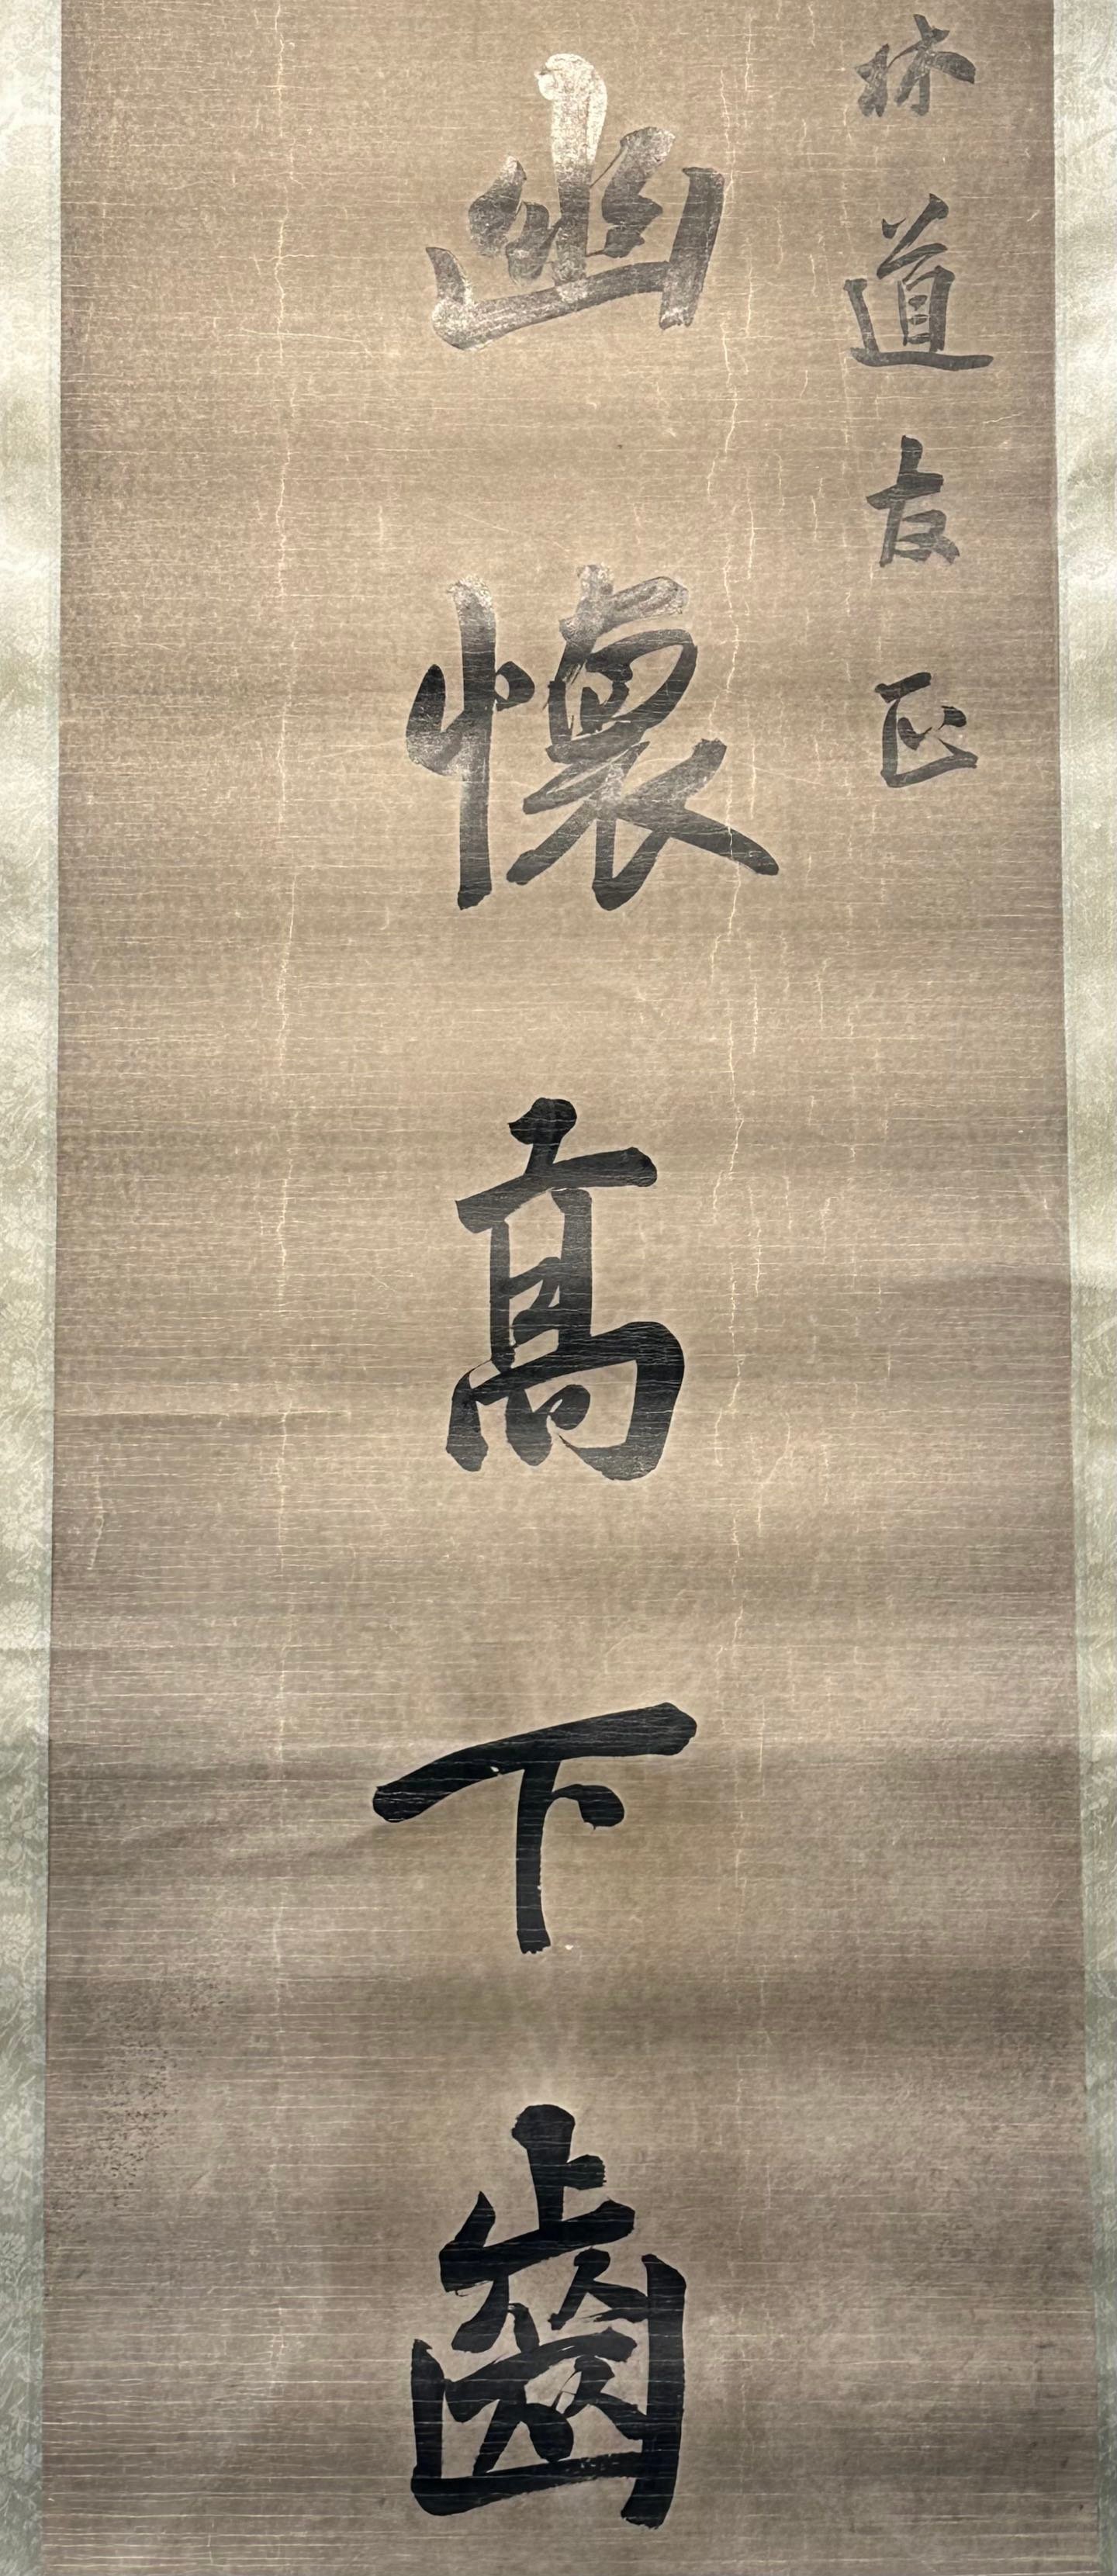 林道友正
幽懷高下齒